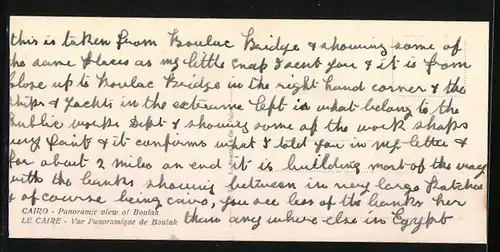 this is taken from Boulac Bridge & showing some of
the same places as my little snap I sent you & it is from
close up to Boulac Bridge in the right hand corner & the
ships & yachts in the extreme left is what belong to the
Public works Dept & showing some of the work shops
very faint & it confirms what I told you in my letter &
for about 2 miles on end it is building most of the way
with the banks showing between in very large patches
& of course being Cairo, you see less of the banks her
than any where else in Egypt
CAIRO - Panoramic view of Boulak
LE CAIRE - Vue Panoramique de Boulak